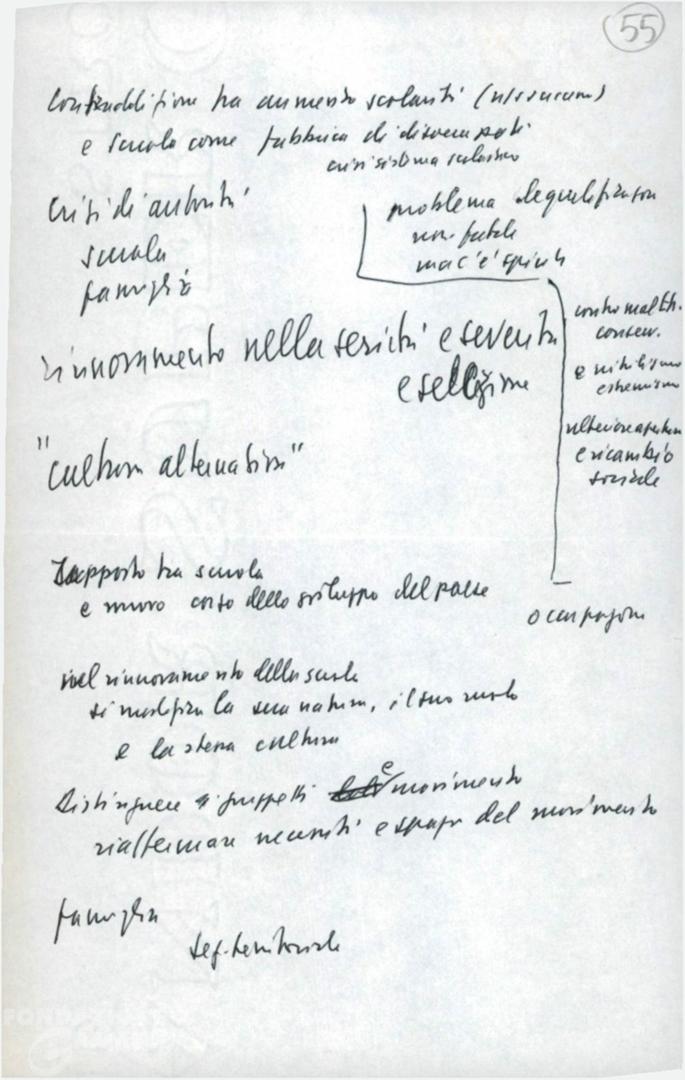 55
Contraddizione tra aumento scolarità (necessaria)
e scuola come fabbrica di disoccupati
crisi sistema scolastico
Crisi di autorità
scuola
famiglia
problema dequalificazione
non fatale
ma c'è spinta
rinnovamento nella serietà e severità
e selezione
contro
conserv.
e nihilismo
estremismo
ulteriore apertura
e ricambio
sociale
"cultura alternativa"
Rapporto tra scuola
e nuovo corso dello sviluppo del paese
occupazione
nel rinnovamento della scuola
si modifica la sua natura, il suo ruolo
e la stessa cultura
Distinguere gruppetti e movimento
riaffermare necessità e spazio del movimento
famiglia
territoriale
FONDAZIONE
GRAMSCI